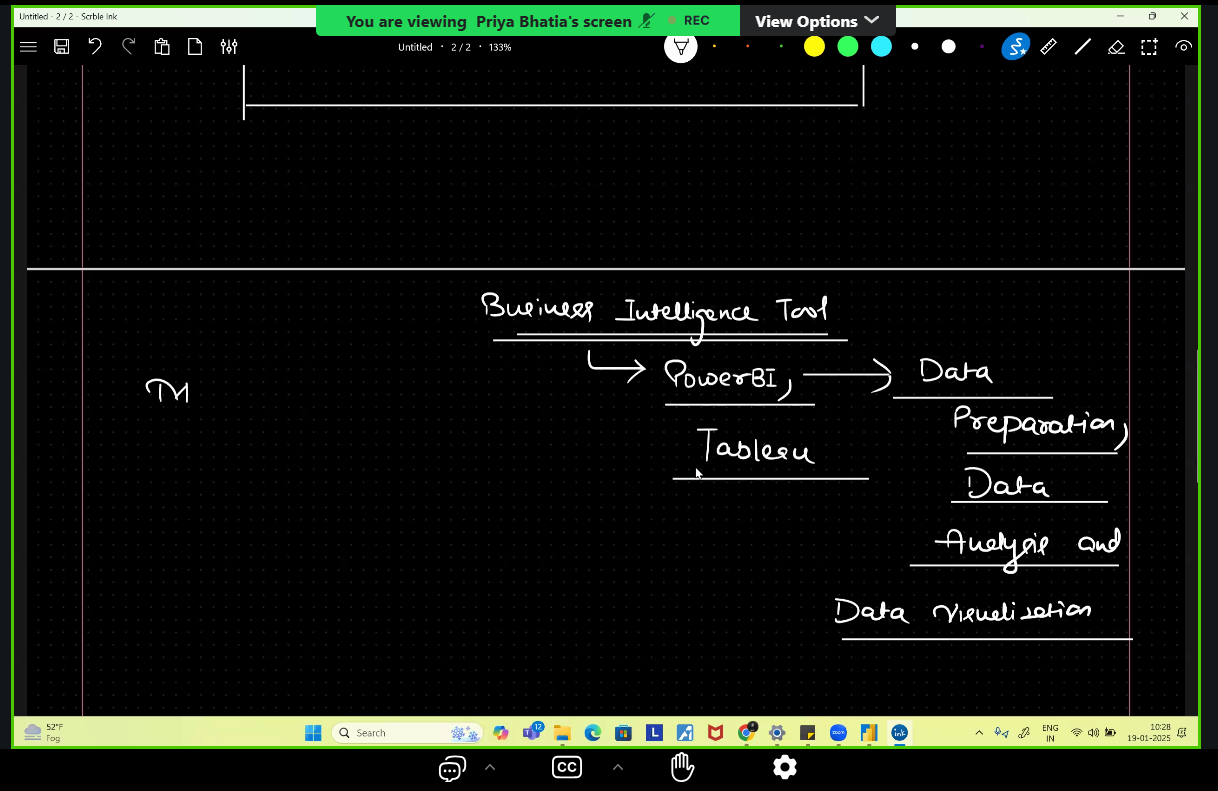 Untitled - 2 / 2 - Scrble Ink
You are viewing Priya Bhatia's screen
REC
View Options
Untitled · 2 / 2 · 133%
Business Intelligence Tool
PowerBI,
Data
Preparation,
Tableau
Data
Analysis and
Data Visualization
52°F
Fog
Search
12
L
zoom
ink
ENG
IN
10:28
19-01-2025
CC